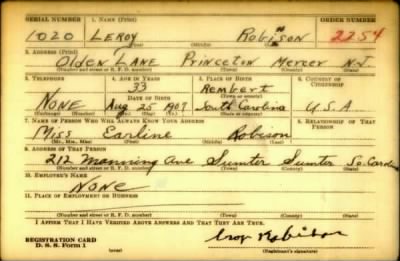 SERIAL NUMBER 1. NAME (Print) ORDER NUMBER
1020 LEROY ROBISON 2254
(First) (Middle) (Last)
2. ADDRESS (Print)
Olden Lane Princeton Mercer N.J.
(Number and street or R. F. D. number) (Town) (County) (State)
3. TELEPHONE 4. AGE IN YEARS 5. PLACE OF BIRTH 6. COUNTRY OF CITIZENSHIP
33 Rembert
DATE OF BIRTH (Town or county)
None Aug 25 1907 South Carolina U.S.A.
(Exchange) (Number) (Mo.) (Day) (Yr.) (State or country)
7. NAME OF PERSON WHO WILL ALWAYS KNOW YOUR ADDRESS 8. RELATIONSHIP OF THAT PERSON
Miss Earline Robison
(Mr., Mrs., Miss) (First) (Middle) (Last)
9. ADDRESS OF THAT PERSON
212 Manning Ave Sumter Sumter So. Caro
(Number and street or R. F. D. number) (Town) (County) (State)
10. EMPLOYER'S NAME
None
11. PLACE OF EMPLOYMENT OR BUSINESS
(Number and street or R. F. D. number) (Town) (County) (State)
I AFFIRM THAT I HAVE VERIFIED ABOVE ANSWERS AND THAT THEY ARE TRUE.
REGISTRATION CARD
D. S. S. Form 1 Robison
(Registrant's signature)